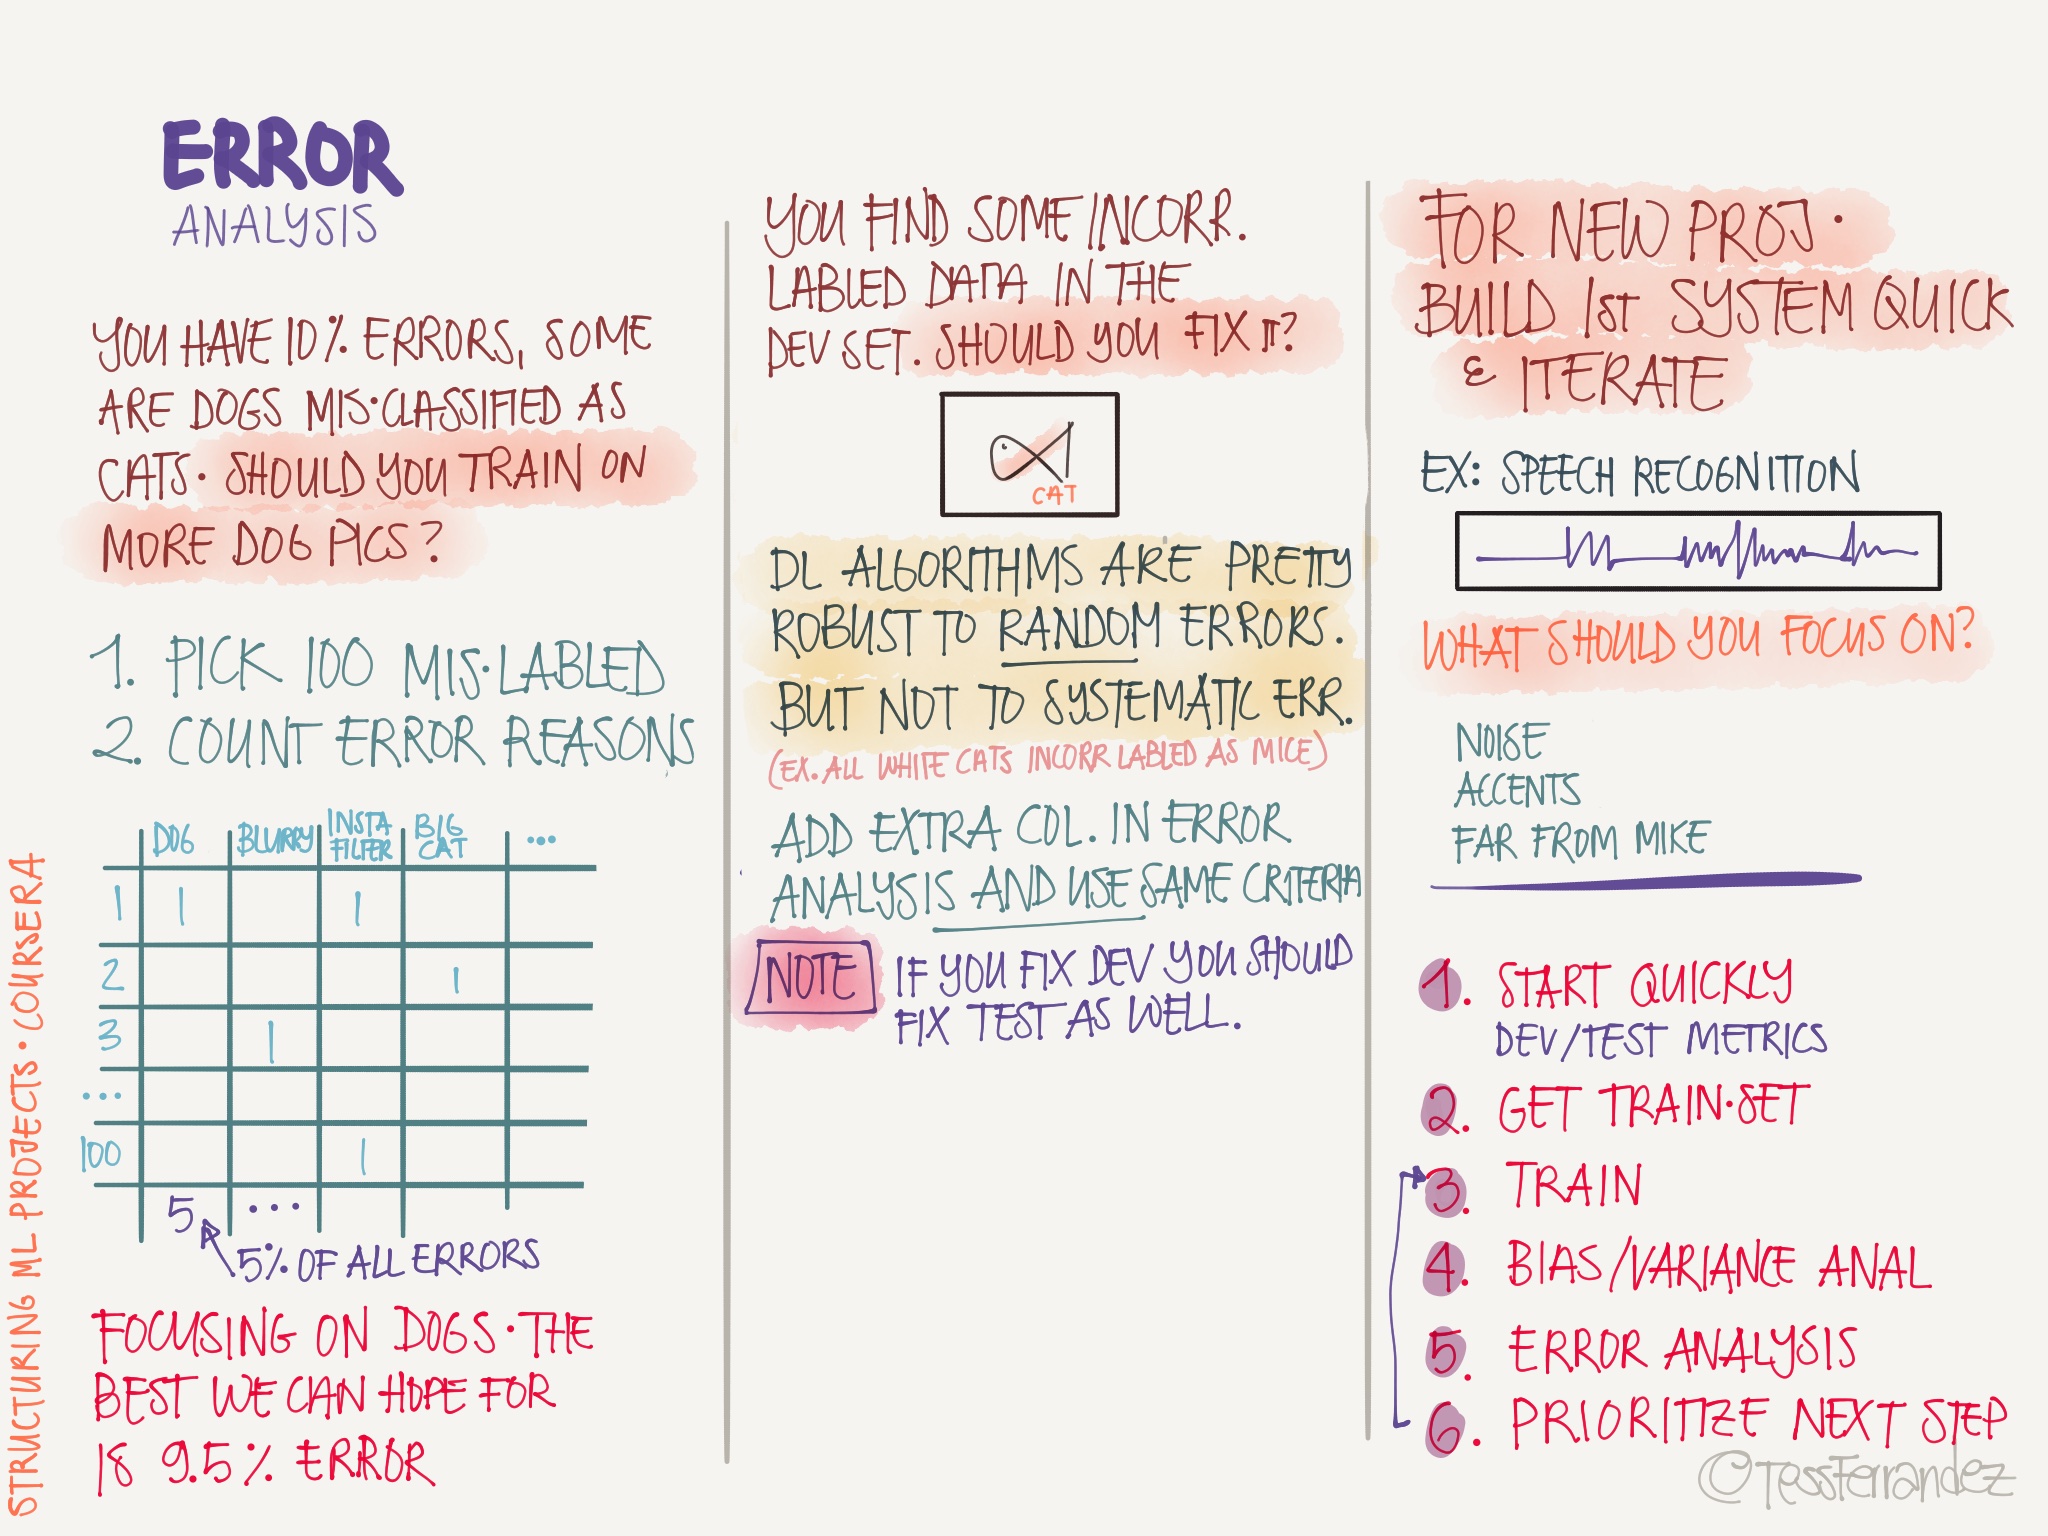 ERROR
ANALYSIS
YOU HAVE 10% ERRORS, SOME
ARE DOGS MIS·CLASSIFIED AS
CATS· SHOULD YOU TRAIN ON
MORE DOG PICS?
1. PICK 100 MIS·LABLED
2. COUNT ERROR REASONS
DOG BLURRY INSTA FILTER BIG CAT ...
1 1 1
2 1
3 1
...
100 1
5 ...
5% OF ALL ERRORS
FOCUSING ON DOGS·THE
BEST WE CAN HOPE FOR
IS 9.5% ERROR
STRUCTURING ML PROJECTS · COURSERA
YOU FIND SOME INCORR.
LABLED DATA IN THE
DEV SET. SHOULD YOU FIX IT?
CAT
DL ALGORITHMS ARE PRETTY
ROBUST TO RANDOM ERRORS.
BUT NOT TO SYSTEMATIC ERR.
(EX. ALL WHITE CATS INCORR LABLED AS MICE)
ADD EXTRA COL. IN ERROR
ANALYSIS AND USE SAME CRITERIA
NOTE IF YOU FIX DEV YOU SHOULD
FIX TEST AS WELL.
FOR NEW PROJ·
BUILD 1st SYSTEM QUICK
& ITERATE
EX: SPEECH RECOGNITION
WHAT SHOULD YOU FOCUS ON?
NOISE
ACCENTS
FAR FROM MIKE
1. START QUICKLY
DEV/TEST METRICS
2. GET TRAIN·SET
3. TRAIN
4. BIAS/VARIANCE ANAL
5. ERROR ANALYSIS
6. PRIORITIZE NEXT STEP
©TessFerrandez